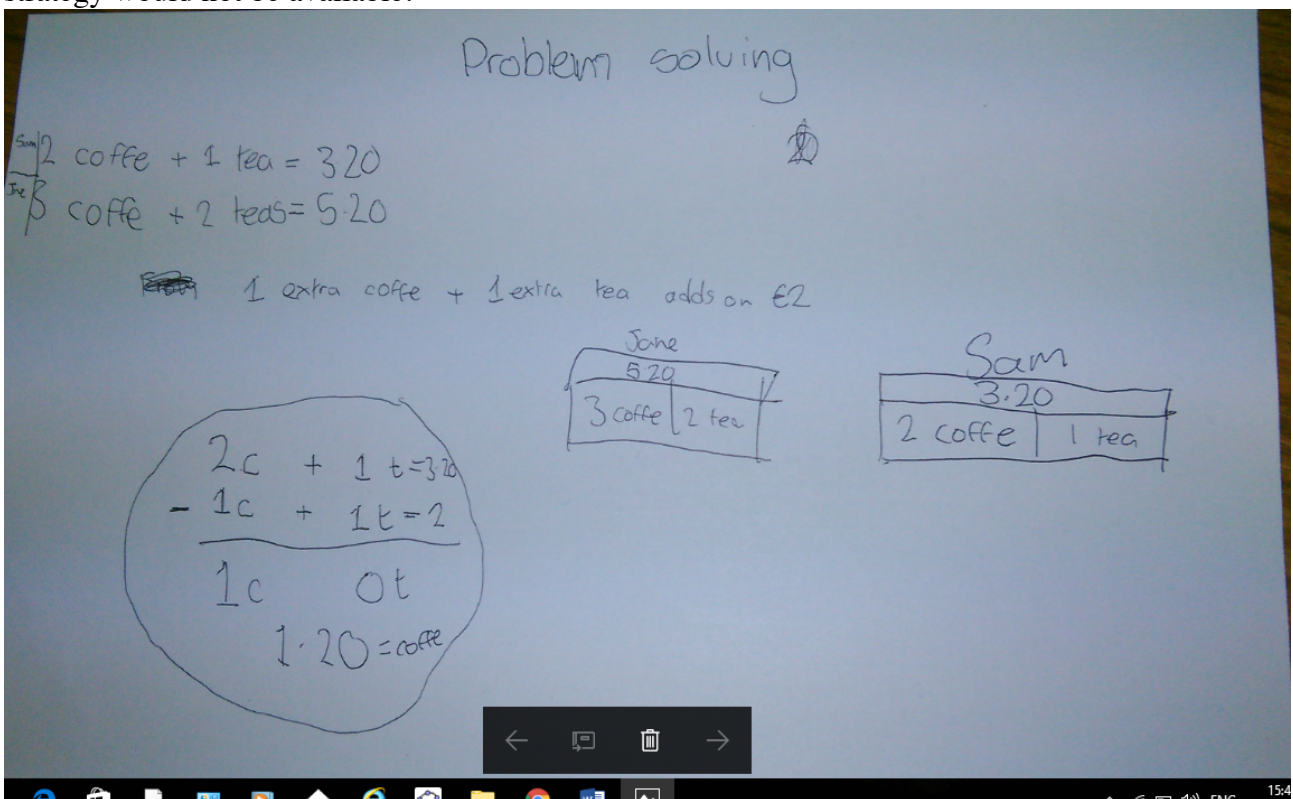 strategy would not be available.
Problem solving
Sam 2 coffe + 1 tea = 3.20
Jne 3 coffe + 2 teas = 5.20
1 extra coffe + 1 extra tea adds on €2
Jane
5.20
3 coffe 2 tea
Sam
3.20
2 coffe 1 tea
2c + 1t = 3.20
- 1c + 1t = 2
1c 0t
1.20 = coffe
ENG
15:4